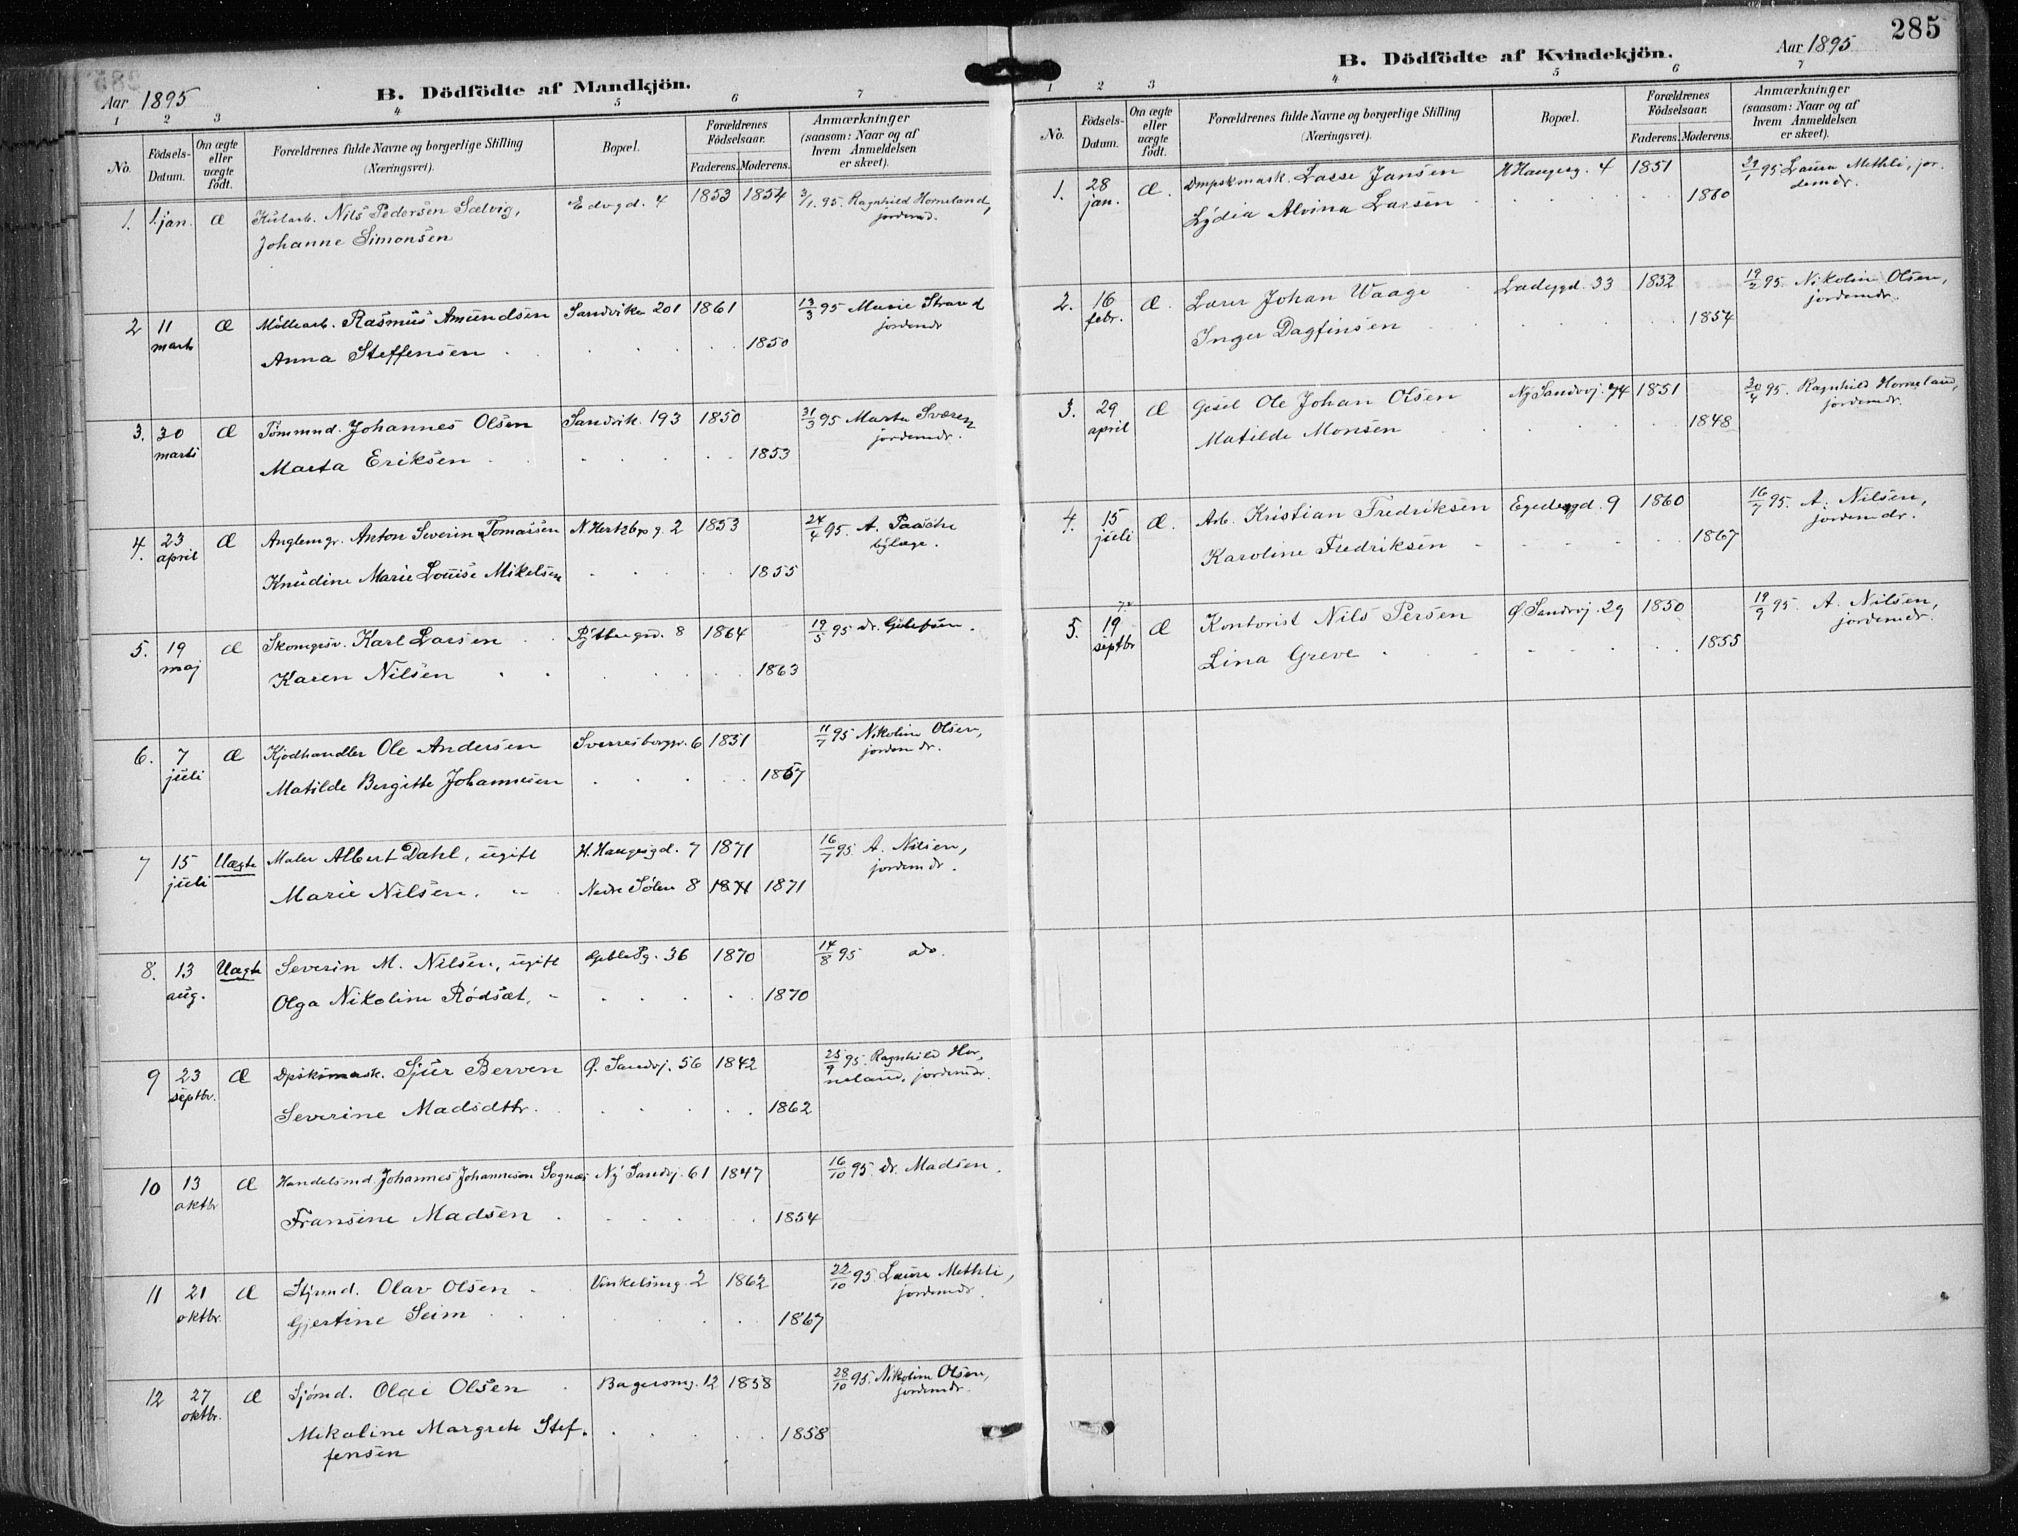 Aar 1895
B. Dödfödte af Mandkjön.
1 2 3 4 5 6 7
No.
Födsels-Datum.
Om ægte eller uægte födt.
Forældrenes fulde Navne og borgerlige Stilling (Næringsvei).
Bopæl.
Forældrenes Födselsaar.
Faderens. Moderens.
Anmærkninger (saasom: Naar og af hvem Anmeldelsen er skeet).
1. 1. jan. Æ Nils Pedersen Sælvig, Edvgd. 4 1853 1854 3/1. 95. Ragnhild Horneland,
Johanne Simonsen jordemd.
2 11 Æ Möllearb. Rasmus Amundsen Sandviken 201 1861 13/3 95 Marie Strand
marts Anna Steffensen 1850 jordemdr
3. 30 Æ Tömmmd. Johannes Olsen Sandvik. 193 1850 31/3 95 Marta Sværen
marts Marta Eriksen 1853 jordemdr.
4. 23 Æ Anton Severin Tomassen N. Hertzbg g. 2 1853 24/4 95. A. Paasche
april Knudine Marie Louise Mikelsen 1855 bylæge.
5. 19 Æ Skomgsv. Karl Larsen 8 1864 19/5 95 dr.
maj Karen Nilsen 1863
6. 7 Æ Kjødhandler Ole Andersen Sverresborggt. 6 1851 11/7 95 Nikoline Olsen,
juli Matilde Bergitte Johannesen 1867 jordemdr.
7 15 Uægte Maler Albert Dahl, ugift H. Haugesgd. 7 1871 16/7 95. A. Nilsen,
juli Marie Nilsen. " Nedre Sölen 8 1871 1871 jordemdr.
8. 13 Uægte Severin M. Nilsen, ugift 36 1870 14/8 95 do.
aug. Olga Nikoline Rødsæt, " 1870
9 23 Æ Dpskimask. Sjur Berven Ø. Sandvj. 56 1842 25/9 95. Ragnhild Hor-
septbr. Severine Madsdtr. 1862 neland, jordemdr.
10 13 Æ Handelsmd. Johannes Johannesen Sognæs Ny Sandvj. 61 1847 16/10 95. dr. Madsen.
oktbr Fransine Madsen 1854
11 21 Æ Stjrmd. Olav Olsen Vinkelsmg. 2 1862 22/10 95. Laura Methli,
oktbr. Gjertine Seim 1867 jordemdr.
12 27 Æ Sjømd. Olai Olsen Bagersmg. 12 1858 28/10 95. Nikoline Olsen,
oktbr. Mikaline Margrete Stef- 1858 jordemdr.
fensen
285
B. Dödfödte af Kvindekjön.
Aar 1895
1 2 3 4 5 6 7
No.
Födsels-Datum.
Om ægte eller uægte födt.
Forældrenes fulde Navne og borgerlige Stilling (Næringsvei).
Bopæl.
Forældrenes Födselsaar.
Faderens. Moderens.
Anmærkninger (saasom: Naar og af hvem Anmeldelsen er skeet).
1. 28 Æ. Dmpskmask. Lasse Jansen H Haugesg. 4 1851 29/1 95 Laura Methli, jor-
jan. Lydia Alvina Larsen 1860 demdr.
2. 16 Æ. Lærer Johan Waage Ladegd. 33 1852 19/2 95. Nikoline Olsen,
febr. Inger Dagfinsen 1854 jordemdr.
3. 29 Æ Gesel Ole Johan Olsen Ny Sandvvj. 74 1851 30/4 95. Ragnhild Horneland,
april Matilde Monsen 1848 jordemdr.
4. 15 Æ. Arb. Kristian Fredriksen Egedesgd. 9 1860 16/7 95. A. Nilsen,
juli Karoline Fredriksen 1867 jordemdr.
5. 19 Æ Kontorist Nils Persen Ø. Sandvj. 29 1850 19/9 95. A. Nilsen,
septbr Lina Greve 1855 jordemdr.